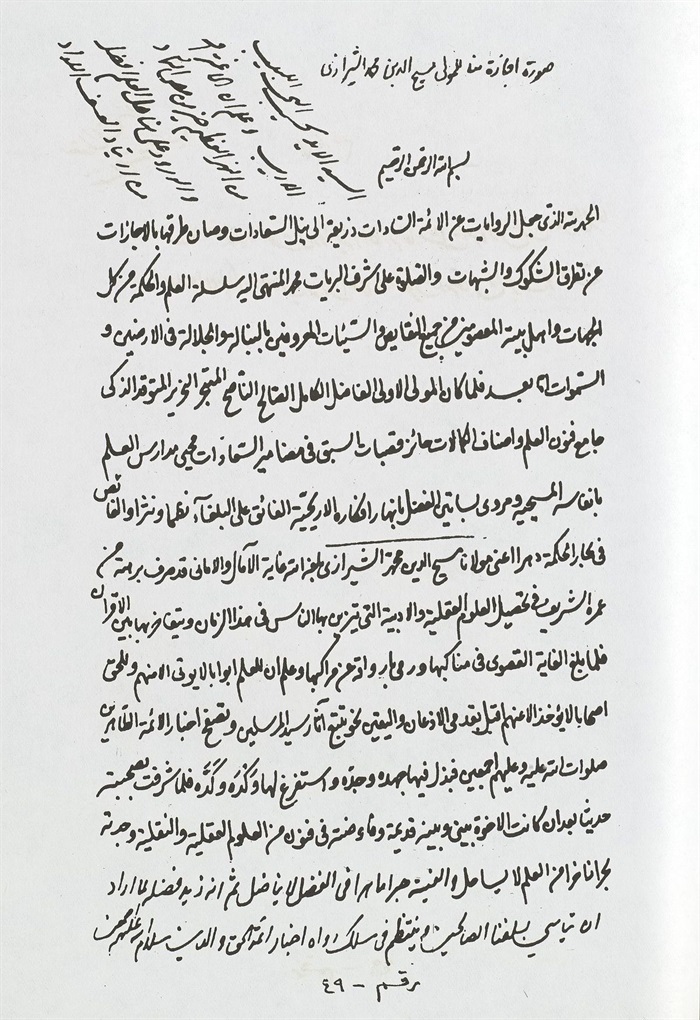 صورة اجازة منا للمولى مسيح الدين محمد الشيرازى
بسم الله الرحمن الرحيم
الحمد لله الذى جعل الروايات عن الائمة السادات ذريعة الى نيل السعادات وصان طرقها بالاجازات
عن تطرق الشكوك والشبهات والصلوة على اشرف البريات محمد المنتهى اليه سلسلة العلم والحكمة من كل
الجهات واهل بيته المعصومين من جميع النقايص والسيئات المعروفين بالنبالة والجلالة فى الارضين و
السموات اما بعد فلما كان المولى الاولى الفاضل الكامل الصالح الناصح المتبحر النحرير المتوقد الذكى
جامع فنون العلم واصناف الكمالات حائز قصبات السبق فى مضامير السعادات محيى مدارس العلم
بانفاسه المسيحية ومروى بساتين الفضل بانهار افكاره الاريحية الفائق على البلغآء نظما ونثرا والغائص
فى بحار الحكمة دهرا اعنى مولانا مسيح الدين محمد الشيرازى بلغه الله غاية الآمال والامانى قد صرف برهة من
عمره الشريف فى تحصيل العلوم العقلية والادبية التى يتزين بها الناس فى هذا الزمان ويتفاخر بها بين الاقران
فلما بلغ الغاية القصوى فى مناكبها ورمى بارواقه عن مراكبها وعلم ان للعلم ابوابا لا يوتى الا منهم وللحق
اصحابا لا يؤخذ الا عنهم اقبل بقدمى الاذعان واليقين نحو تتبع آثار سيد المرسلين وتصفح اخبار الائمة الطاهرين
صلوات الله عليه وعليهم اجمعين فبذل فيها جهده وجده واستفرغ لها وكده وكده فلما شرفت بصحبته
حديثا بعد ان كانت الاخوة بينى وبينه قديمة وفاوضته فى فنون من العلوم العقلية والنقلية وجدته
بحرا زاخرا من العلم لا يساحل والفيته حبرا ماهرا فى الفضل لا يناضل ثم انه زيد فضله لما اراد
ان يتاسى بسلفنا الصالحين وينتظم فى سلك رواة اخبار ائمة الحق والدين سلام الله عليهم اجمعين
رقم - ٤٩